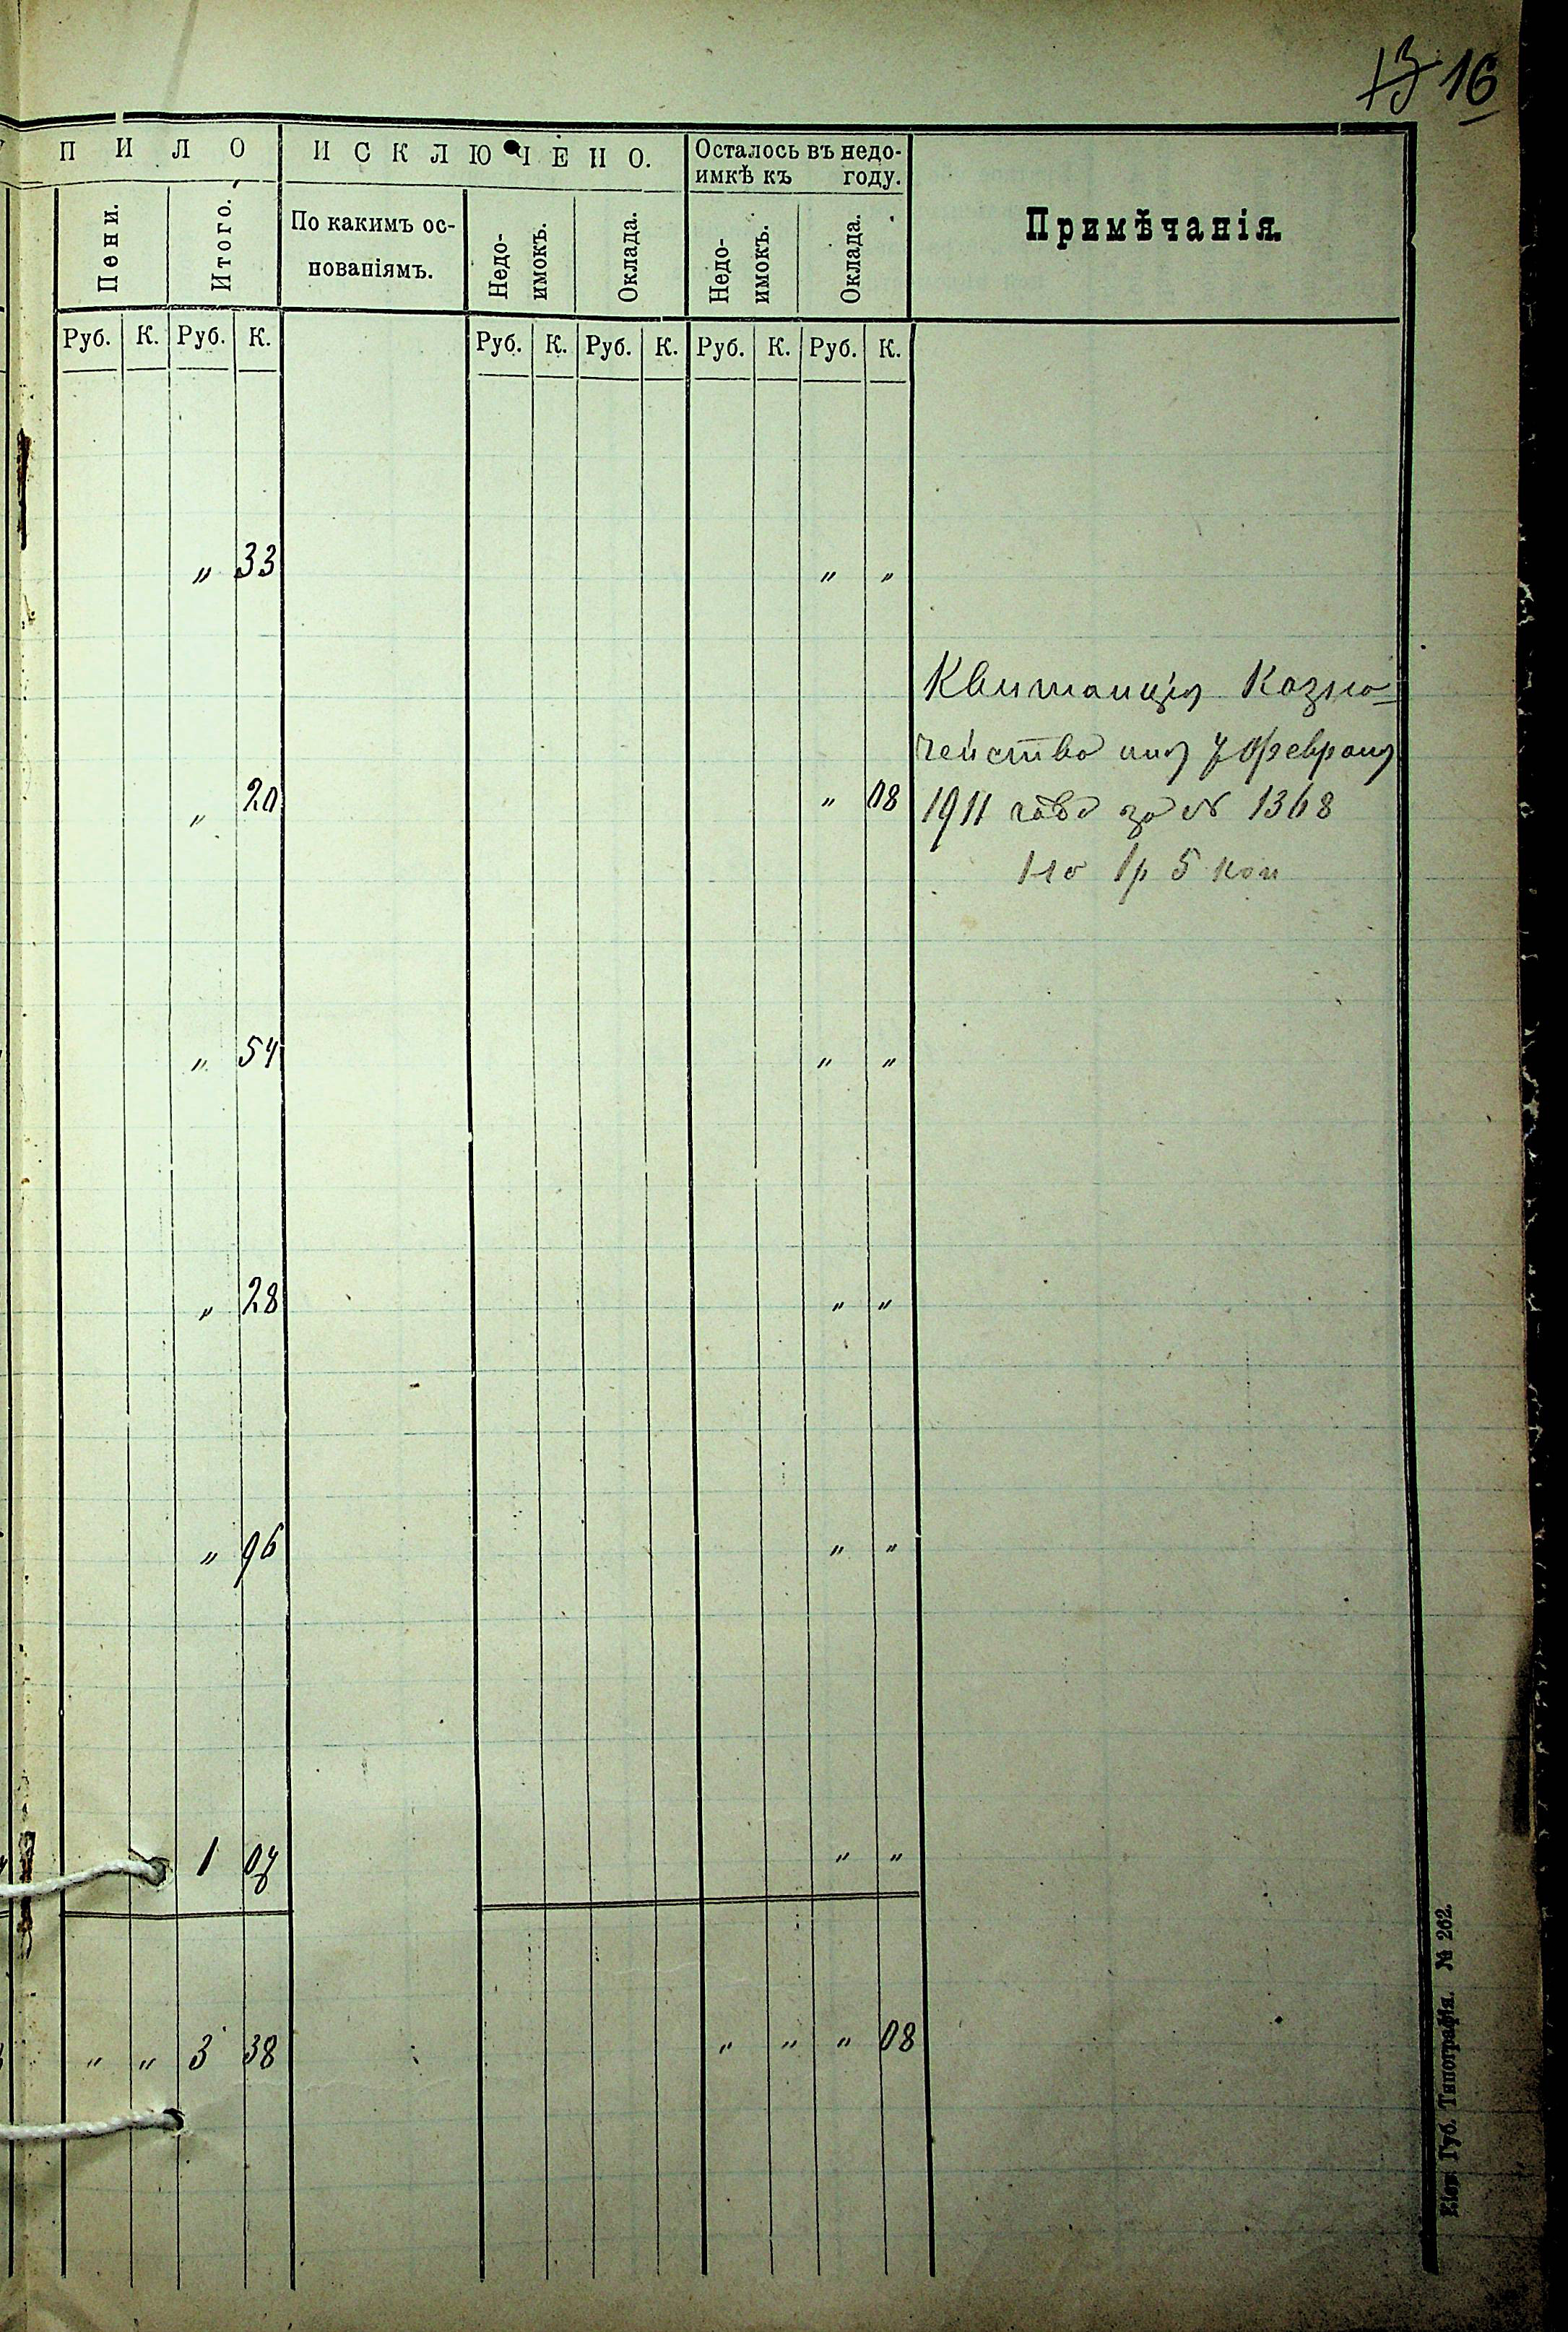 13 16
ПИЛО ИСКЛЮЧЕНО. Осталось въ недо-
имкѣ къ году.
Примѣчанія.
Пени. Итого. По какимъ ос-
нованіямъ.
Недо-
имокъ. Оклада. Недо-
имокъ. Оклада.
Руб. К. Руб. К. Руб. К. Руб. К. Руб. К. Руб. К.
" 33 " "
Квитанція Казна-
чейства 7 февраля
" 20 " 08 1911 года за № 1368
на 1р 5 коп
" 54 " "
" 28 " "
" 96 " "
1 07 " "
" " 3 38 " " " 08
Губ. Типографія. № 262.